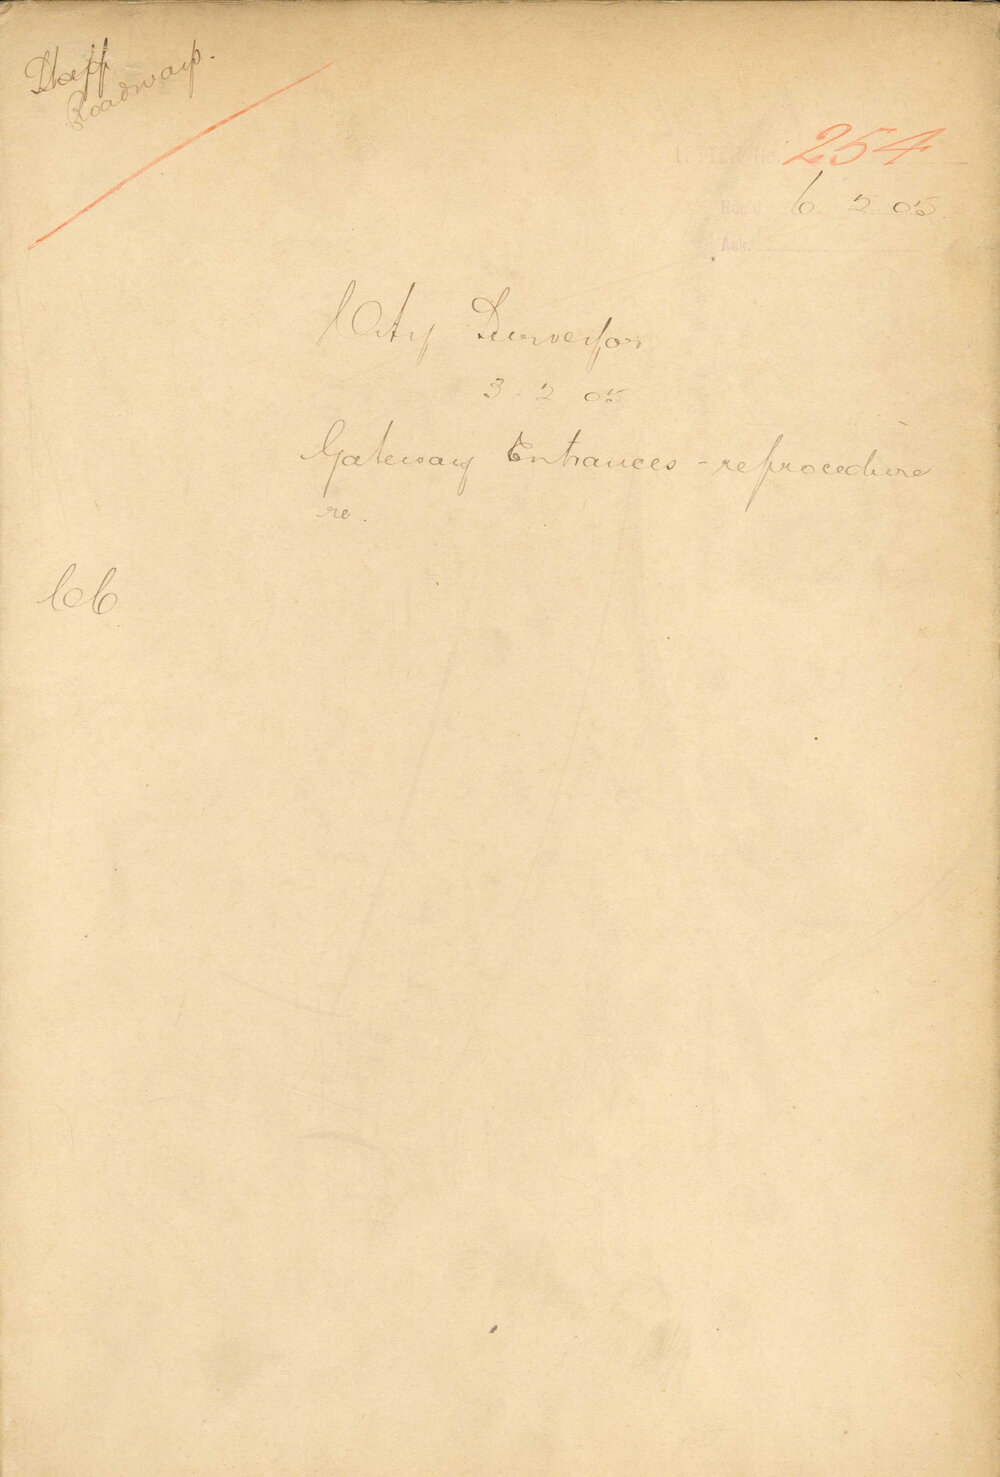 Staff
Roadways.
LETTER No. 254
Rec'd 6 2 05.
Ack.
City Surveyor
3-2 05
Gateway Entrances - re procedure
re.
CC